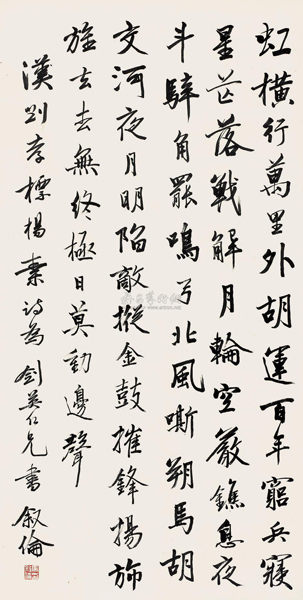 虹橫行萬里外胡運百年窮兵寢
星芒落戰解月輪空嚴鐎息夜
斗騂角罷鳴弓北風嘶朔馬胡
交河夜月明陷敵摐金鼓摧鋒揚旆
旌去去無終極日莫動邊聲
漢劉孝標楊素詩為劍英仁兄書 敘倫